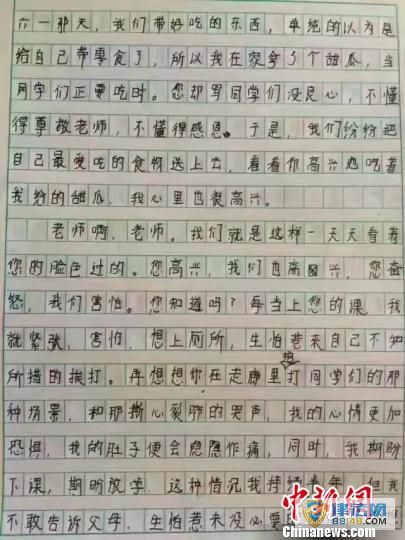 六一那天，我们带好吃的东西，单纯的以为是
给自己带零食了，所以我在家拿了个甜瓜，当
同学们正要吃时。您却骂同学们没良心，不懂
得尊敬老师，不懂得感恩。于是，我们纷纷把
自己最爱吃的食物送上去，看着你高兴地吃着
我给的甜瓜，我心里也很高兴。
老师啊，老师。我们就是这样一天天看着
您的脸色过的。您高兴，我们也高兴，您奋
怒，我们害怕。您知道吗？每当上您的课，我
就紧张，害怕，想上厕所，生怕惹来自己不知
所措的挨打。再想想你在走廊里打同学们的那
种场景，和那撕心裂肺的哭声，我的心情更加
恐惧，我的肚子便会隐隐作痛，同时，我期盼
下课，期盼放学。这种情况我持续半年，但我
不敢告诉父母，生怕惹来没必要的
中新网
律法网
88148.COM
CHINANEWS.COM